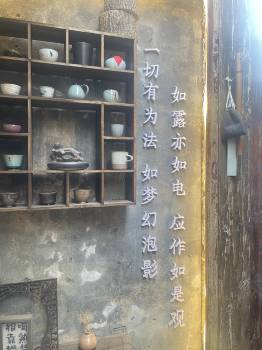 一切有为法 如梦幻泡影
如露亦如电 应作如是观